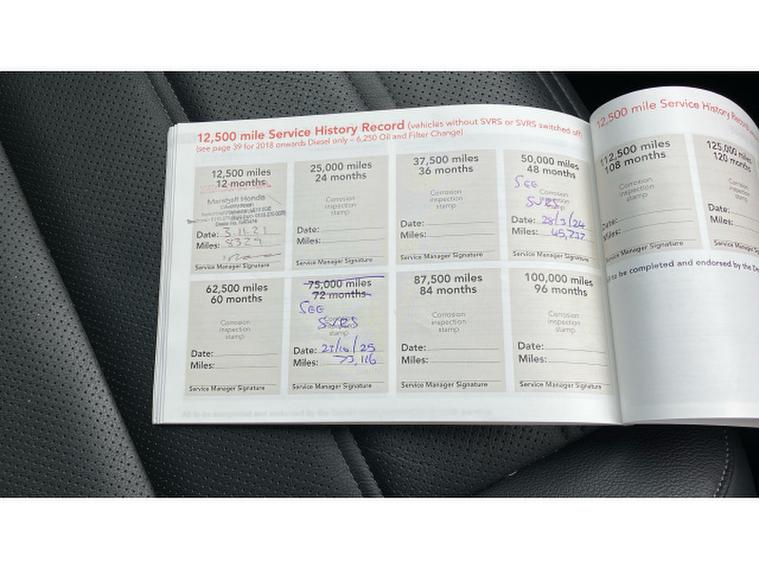 12,500 mile Service History Record (vehicles without SVRS or SVRS switched off)
(see page 39 for 2018 onwards Diesel only – 6,250 Oil and Filter Change)
12,500 miles
12 months
Marshall Honda
Date: 3.11.21
Miles: 8329
Service Manager Signature
25,000 miles
24 months
Corrosion
inspection
stamp
Date:
Miles:
Service Manager Signature
37,500 miles
36 months
Corrosion
inspection
stamp
Date:
Miles:
Service Manager Signature
50,000 miles
48 months
SEE
Corrosion
SVRS
stamp
Date: 28/3/24
Miles: 45,232
Service Manager Signature
62,500 miles
60 months
Corrosion
inspection
stamp
Date:
Miles:
Service Manager Signature
75,000 miles
72 months
SEE
Corrosion
SVRS
stamp
Date: 23/10/25
Miles: 73,116
Service Manager Signature
87,500 miles
84 months
Corrosion
inspection
stamp
Date:
Miles:
Service Manager Signature
100,000 miles
96 months
Corrosion
inspection
stamp
Date:
Miles:
Service Manager Signature
12,500 mile Service History Record
112,500 miles
108 months
Corrosion
inspection
stamp
Date:
Miles:
Service Manager Signature
125,000 miles
120 months
Corrosion
inspection
stamp
Date:
Miles:
Service Manager
to be completed and endorsed by the